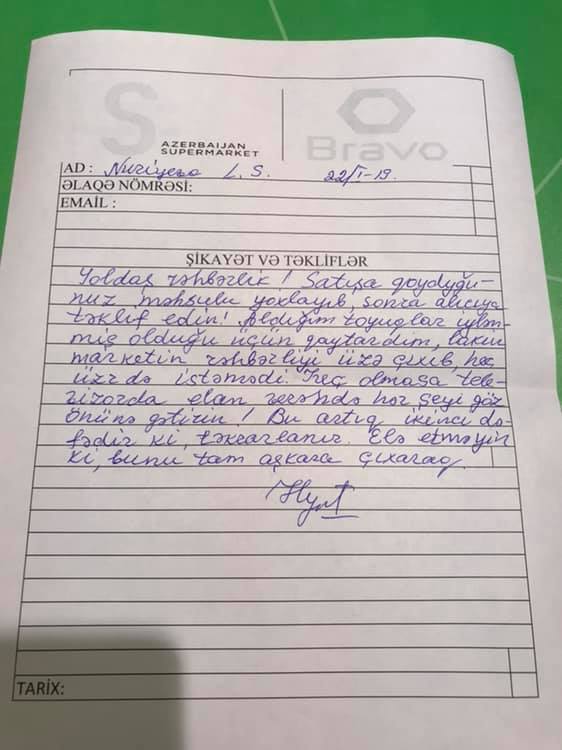 S
AZERBAIJAN
SUPERMARKET
Bravo
AD : Nuriyeva L. S. 22/I-19.
ƏLAQƏ NÖMRƏSİ:
EMAIL :
ŞİKAYƏT VƏ TƏKLİFLƏR
Yoldaş rəhbərlik! Satışa qoyduğu-
nuz məhsulu yoxlayıb, sonra alıcıya
təklif edin! Aldığım toyuqlar iylən-
miş olduğu üçün qaytardım, lakin
marketin rəhbərliyi üzə çıxıb, heç
üzr də istəmədi. Heç olmasa tele-
vizorda elan verəndə hər şeyi göz
önünə gətirin! Bu artıq ikinci də-
fədir ki, təkrarlanır. Elə etməyin
ki, bunu tam aşkara çıxaraq.
TARİX: